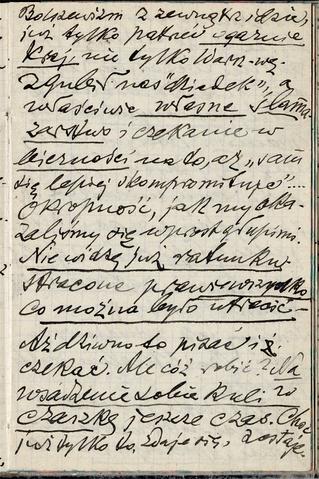 Bolszewizm z zewnątrz idzie,
już tylko patrzeć ogarnie
kraj, nie tylko Warsz-wę.
Zgubił nas "dziadek", a
właściwie własne ślama-
zarstwo i czekanie w
bierności na to, aż "sam
się lepiej skompromituje"...
Okropność, jak my oka-
zaliśmy się wprost głupimi.
Nie widzę już ratunku
stracone prawie wszystko
co można było utracić -
Aż dziwno to pisać i
czekać. Ale cóż robić? Na
wsadzenie sobie kuli w
czaszkę jeszcze czas. Choć
już tylko to, zdaje się, zostaje.